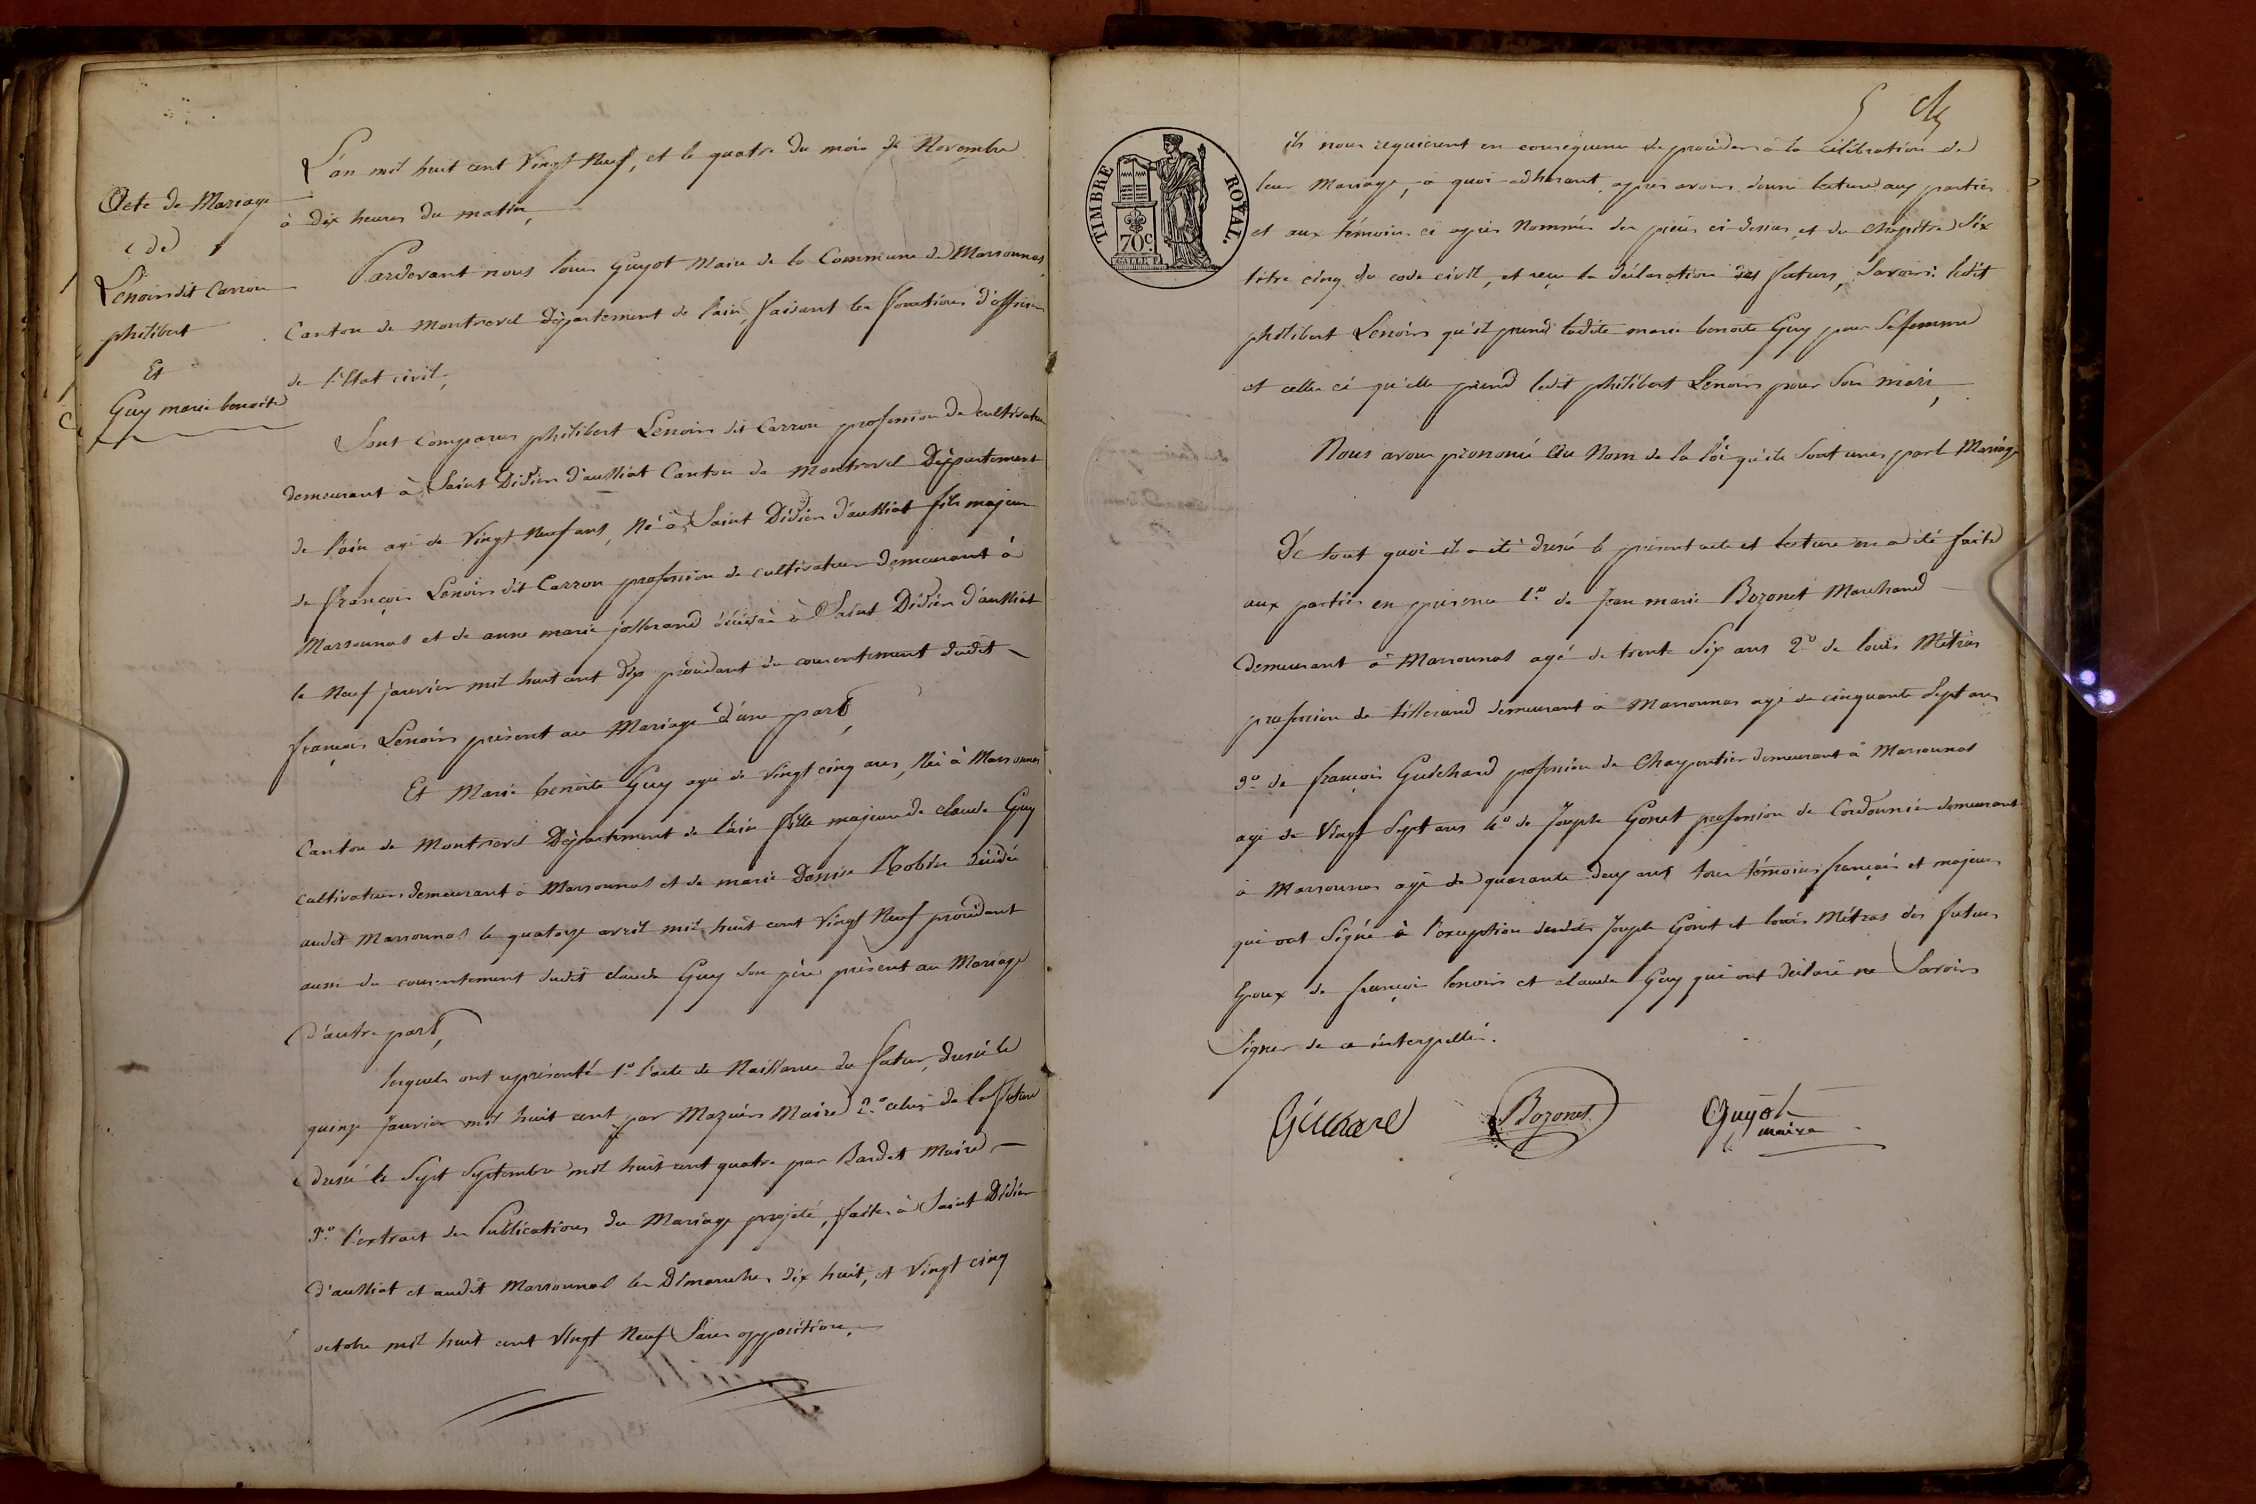 Acte de Mariage
de
Lenoir dit Carron
philibert
Et
Guy marie benoite
L'an mil huit cent Vingt Neuf, et le quatre du mois de Novembre
à Dix heures du matin,
Pardevant nous louis Guyot Maire de la Commune de Marsonnas
Canton de Montrevel Département de l'ain, faisant les fonctions d'officier
de l'Etat civil,
Sont Comparus philibert Lenoir dit Carron profession de cultivateur
demeurant à Saint Didier d'aussiat Canton de Montrevel Département
de l'ain agé de Vingt Neuf ans, Né à Saint Didier d'aussiat fils majeur
de françois Lenoir dit Carron profession de cultivateur demeurant à
Marsonnas et de anne marie josserand décédée à Saint Didier d'aussiat
le Neuf janvier mil huit cent dix procédant du consentement dudit
françois Lenoir présent au Mariage d'une part,
Et Marie benoite Guy agée de Vingt cinq ans, Née à Marsonnas
Canton de Montrevel Département de l'ain fille majeure de claude Guy
cultivateur demeurant à Marsonnas et de marie Denise Robin décédée
audit Marsonnas le quatorze avril mil huit cent Vingt Neuf procédant
aussi du consentement dudit claude Guy son père présent au Mariage
d'autre part,
lesquels ont représenté 1º l'acte de Naissance du futur, dressé le
quinze Janvier mil huit cent par Mazuir Maire 2º celui de la future
dressé le Sept Septembre mil huit cent quatre par Bardet Maire
3º l'extrait des Publications du Mariage projeté, faites à Saint Didier
d'aussiat et audit Marsonnas les Dimanches dix huit, et Vingt cinq
octobre mil huit cent Vingt Neuf Sans opposition,
5
TIMBRE ROYAL.
70c.
ils nous requierent en conséquence de procéder à la célébration de
leur Mariage, à quoi adhérant, après avoir donné lecture aux parties
et aux témoins ci après Nommés des pièces ci-dessus et du chapitre Six
titre cinq du code civil, et reçu la déclaration des futurs, Savoir: ledit
philibert Lenoir qu'il prend ladite marie benoite Guy pour Sa femme
et celle ci qu'elle prend ledit philibert Lenoir pour Son mari,
Nous avons prononcé Au Nom de la loi qu'ils sont unis par l Mariage
De tout quoi il a été dressé le présent acte et lecture en a été faite
aux parties en présence 1º de Jean marie Bozonet Marchand
demeurant à Marsonnas agé de trente Six ans 2º de louis Métras
profession de tisserand demeurant à Marsonnas agé de cinquante Sept ans
3º de françois Guichard profession de Charpentier demeurant à Marsonnas
agé de Vingt Sept ans 4º de Joseph Gonet profession de Cordonnier demeurant
à Marsonnas agé de quarante deux ans tous témoins français et majeurs
qui ont Signé à l'exception desdits Joseph Gonet et louis Métras des futurs
Epoux de françois lenoir et claude Guy qui ont déclaré ne Savoir
Signer de ce interpellés.
Guichard Bozonet Guyot
maire